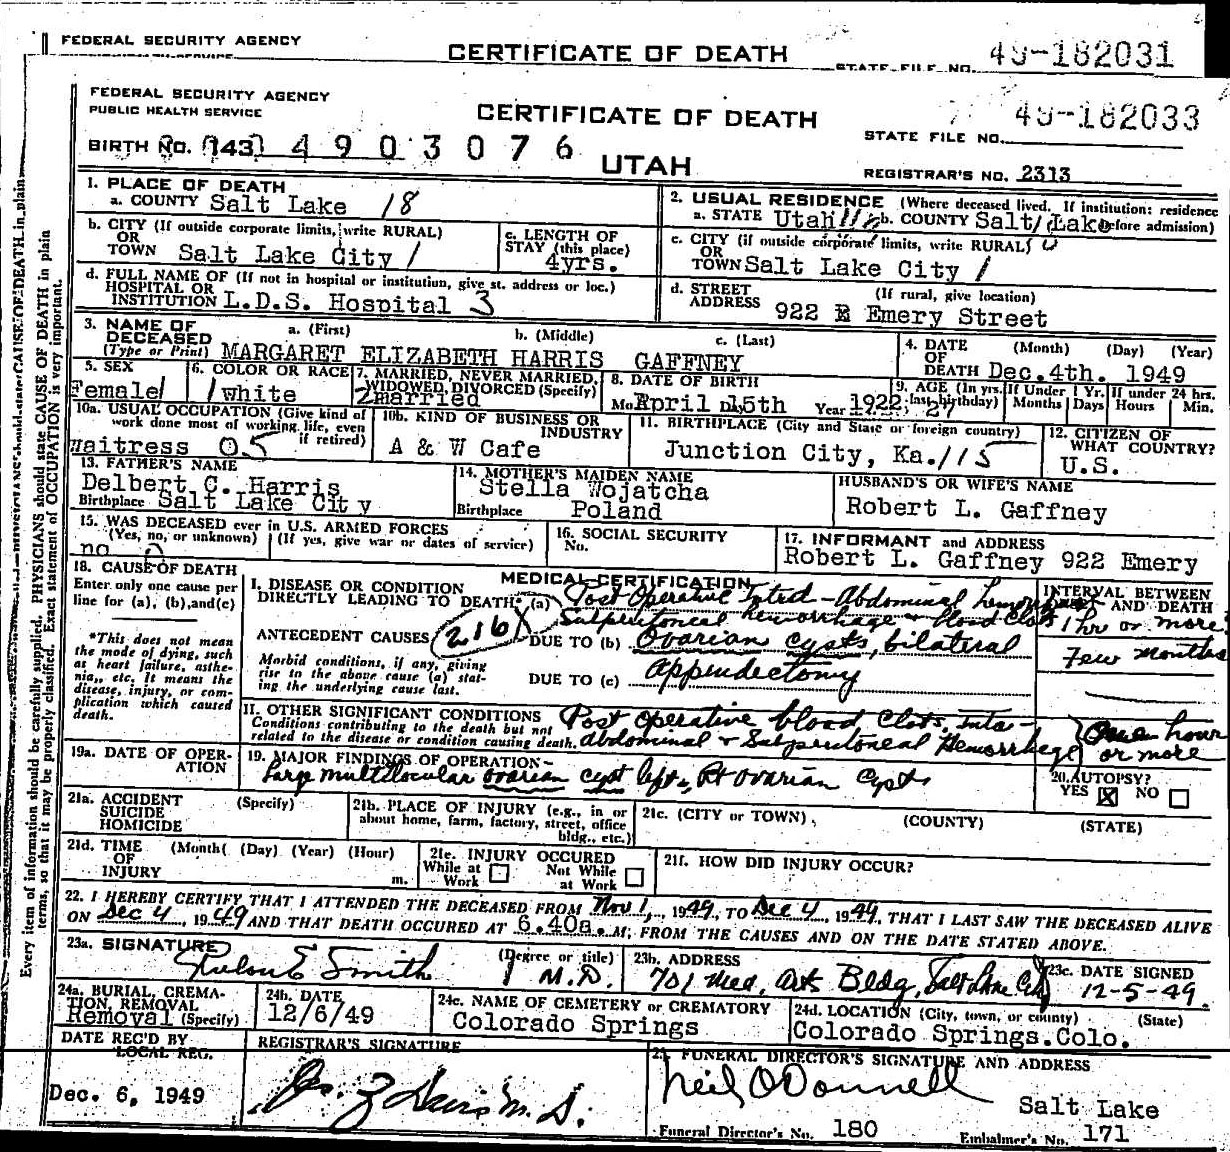 FEDERAL SECURITY AGENCY
CERTIFICATE OF DEATH
STATE FILE NO. 49-182031
FEDERAL SECURITY AGENCY
PUBLIC HEALTH SERVICE
CERTIFICATE OF DEATH
49-182033
STATE FILE NO.
BIRTH NO. 143 4903076
UTAH
REGISTRAR'S NO. 2313
1. PLACE OF DEATH
a. COUNTY Salt Lake 18
2. USUAL RESIDENCE (Where deceased lived. If institution: residence before admission)
a. STATE Utah b. COUNTY Salt Lake
b. CITY (If outside corporate limits, write RURAL)
OR
TOWN Salt Lake City 1
c. LENGTH OF
STAY (this place)
4yrs.
c. CITY (if outside corporate limits, write RURAL) 0
OR
TOWN Salt Lake City 1
d. FULL NAME OF (If not in hospital or institution, give st. address or loc.)
HOSPITAL OR
INSTITUTION L.D.S. Hospital 3
d. STREET (If rural, give location)
ADDRESS 922 E Emery Street
3. NAME OF a. (First) b. (Middle) c. (Last)
DECEASED
(Type or Print) MARGARET ELIZABETH HARRIS GAFFNEY
4. DATE (Month) (Day) (Year)
OF
DEATH Dec. 4th. 1949
5. SEX
Female 1
6. COLOR OR RACE
1 white
7. MARRIED, NEVER MARRIED,
WIDOWED, DIVORCED (Specify)
2 married
8. DATE OF BIRTH
Mo. April Day 15th Year 1922
9. AGE (In yrs. last birthday) 27
If Under 1 Yr.
Months Days
If under 24 hrs.
Hours Min.
10a. USUAL OCCUPATION (Give kind of
work done most of working life, even
if retired)
waitress 05
10b. KIND OF BUSINESS OR
INDUSTRY
A & W Cafe
11. BIRTHPLACE (City and State or foreign country)
Junction City, Ka. 115
12. CITIZEN OF
WHAT COUNTRY?
U.S.
13. FATHER'S NAME
Delbert C. Harris
Birthplace Salt Lake City
14. MOTHER'S MAIDEN NAME
Stella Wojatcha
Birthplace Poland
HUSBAND'S OR WIFE'S NAME
Robert L. Gaffney
15. WAS DECEASED ever in U.S. ARMED FORCES
(Yes, no, or unknown) (If yes, give war or dates of service)
no 0
16. SOCIAL SECURITY
No.
17. INFORMANT and ADDRESS
Robert L. Gaffney 922 Emery
18. CAUSE OF DEATH
Enter only one cause per
line for (a), (b), and (c)
*This does not mean
the mode of dying, such
as heart failure, asthe-
nia, etc. It means the
disease, injury, or com-
plication which caused
death.
MEDICAL CERTIFICATION
I. DISEASE OR CONDITION
DIRECTLY LEADING TO DEATH* (a) Post Operative Intra-Abdominal hemorrhage
Subperitoneal hemorrhage & blood clots
ANTECEDENT CAUSES 216X
DUE TO (b) Ovarian cysts, bilateral
Morbid conditions, if any, giving
rise to the above cause (a) stat-
ing the underlying cause last.
DUE TO (c) appendectomy
INTERVAL BETWEEN
AND DEATH
1 hr or more
Few months
II. OTHER SIGNIFICANT CONDITIONS
Conditions contributing to the death but not
related to the disease or condition causing death.
Post Operative blood clots, Intra-
abdominal & Subperitoneal Hemorrhage
One hour
or more
19a. DATE OF OPER-
ATION
19. MAJOR FINDINGS OF OPERATION
Large multilocular ovarian cyst left, Rt ovarian cysts
20. AUTOPSY?
YES ☒ NO ☐
21a. ACCIDENT (Specify)
SUICIDE
HOMICIDE
21b. PLACE OF INJURY (e.g., in or
about home, farm, factory, street, office
bldg., etc.)
21c. (CITY or TOWN) (COUNTY) (STATE)
21d. TIME (Month) (Day) (Year) (Hour)
OF
INJURY m.
21e. INJURY OCCURED
While at Work ☐ Not While at Work ☐
21f. HOW DID INJURY OCCUR?
22. I HEREBY CERTIFY THAT I ATTENDED THE DECEASED FROM Nov 1, 1949, TO Dec 4, 1949, THAT I LAST SAW THE DECEASED ALIVE
ON Dec 4, 1949 AND THAT DEATH OCCURED AT 6.40a. M. FROM THE CAUSES AND ON THE DATE STATED ABOVE.
23a. SIGNATURE (Degree or title)
Rulon E Smith M.D.
23b. ADDRESS
701 Med. Arts Bldg, Salt Lake City
23c. DATE SIGNED
12-5-49
24a. BURIAL, CREMA-
TION, REMOVAL
Removal (Specify)
24b. DATE
12/6/49
24c. NAME OF CEMETERY or CREMATORY
Colorado Springs
24d. LOCATION (City, town, or county) (State)
Colorado Springs. Colo.
DATE REC'D BY
LOCAL REG.
Dec. 6, 1949
REGISTRAR'S SIGNATURE
M. D.
25. FUNERAL DIRECTOR'S SIGNATURE AND ADDRESS
Neil O'Donnell
Salt Lake
Funeral Director's No. 180 Embalmer's No. 171
Every item of information should be carefully supplied. PHYSICIANS should state CAUSE OF DEATH in plain
terms, so that it may be properly classified. Exact statement of OCCUPATION is very important.